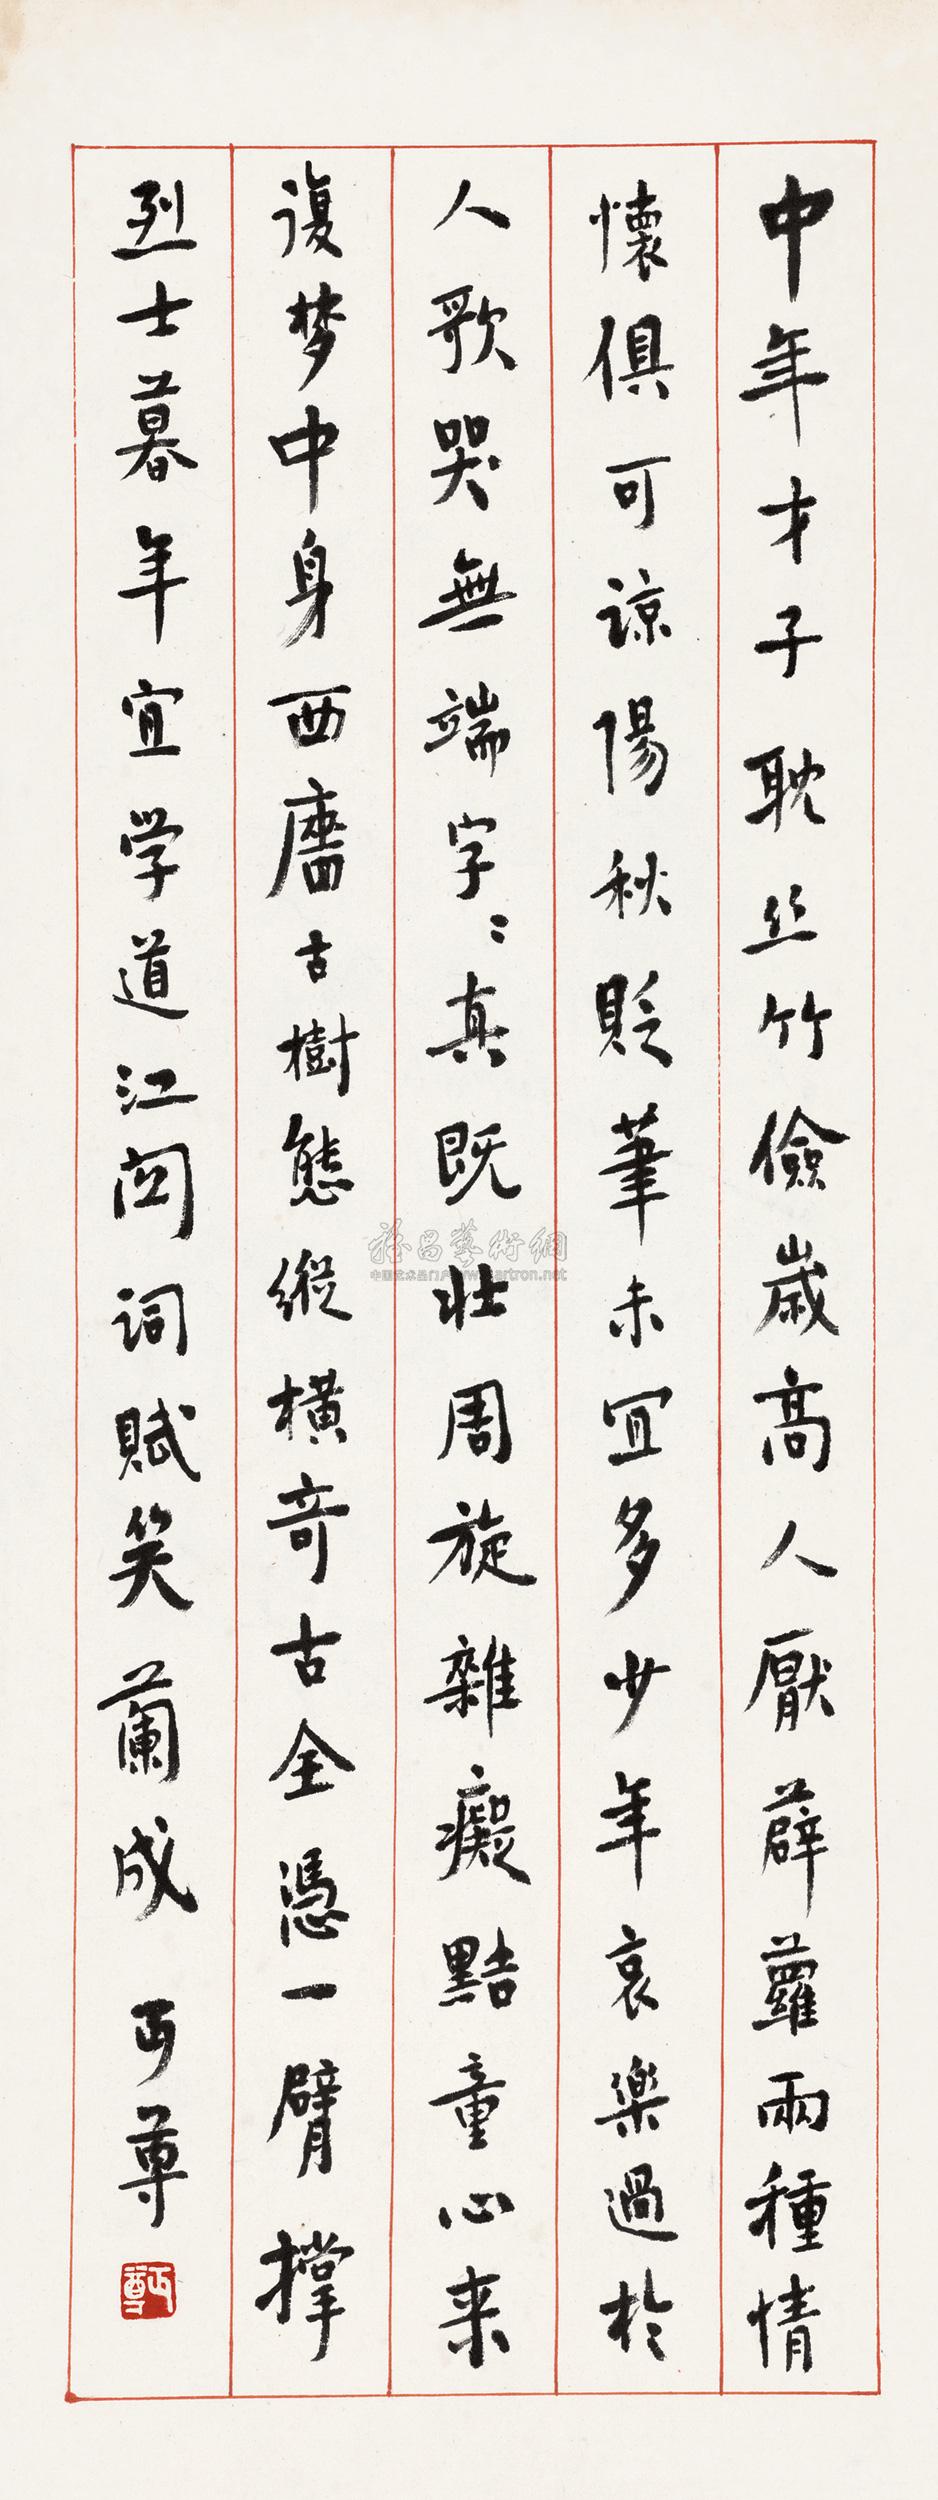 中年才子耽丝竹儉歲高人厭薜蘿兩種情
懷俱可諒陽秋貶筆未宜多少年哀樂過於
人歌哭無端字〻真既壯周旋雜癡黠童心来
復梦中身西廧古樹態縱橫奇古全憑一臂撑
烈士暮年宜学道江関詞賦笑蘭成 丏尊
丏尊
雅昌藝術網
中国艺术品门户www.artron.net